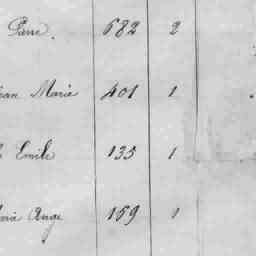 Pierre. 682 2
Jean Marie 401 1
Emile 135 1
Marie Ange 159 1